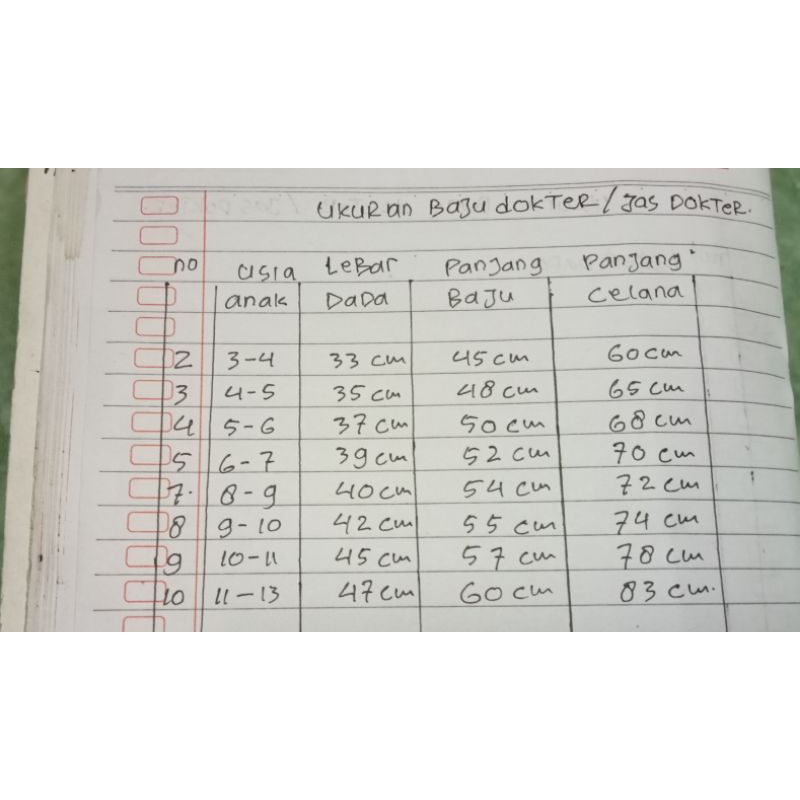 UKURAN BAJU DOKTER / JAS DOKTER.
no usia Lebar Panjang Panjang
anak DADA BAJU Celana
2 3-4 33 cm 45 cm 60 cm
3 4-5 35 cm 48 cm 65 cm
4 5-6 37 cm 50 cm 68 cm
5 6-7 39 cm 52 cm 70 cm
7. 8-9 40 cm 54 cm 72 cm
8 9-10 42 cm 55 cm 74 cm
9 10-11 45 cm 57 cm 78 cm
10 11-13 47 cm 60 cm 83 cm.